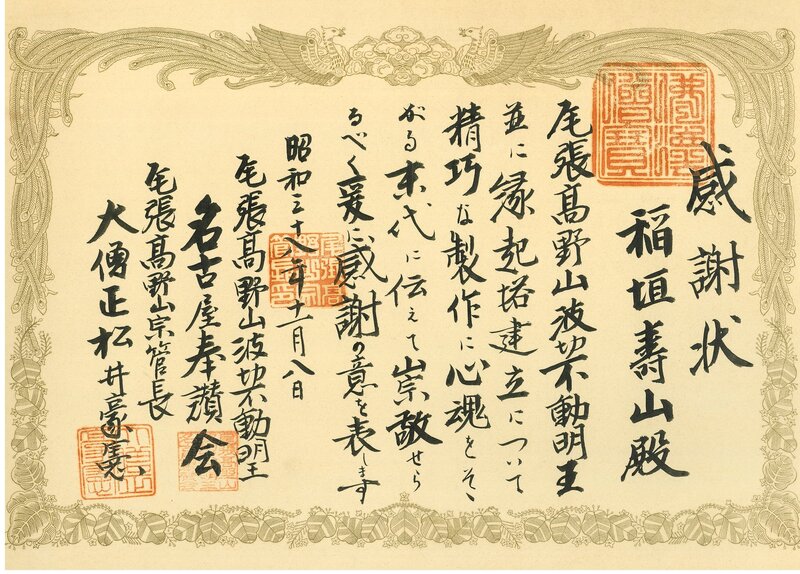 感謝状
稲垣壽山殿
尾張高野山波切不動明王
並に縁起塔建立について
精巧な製作に心魂をそゝ
がる末代に伝えて崇敬せら
るべく爰に感謝の意を表します
昭和三十八年十一月八日
尾張高野山波切不動明王
名古屋奉讃会
尾張高野山宗管長
大僧正松井
佛法
僧寶